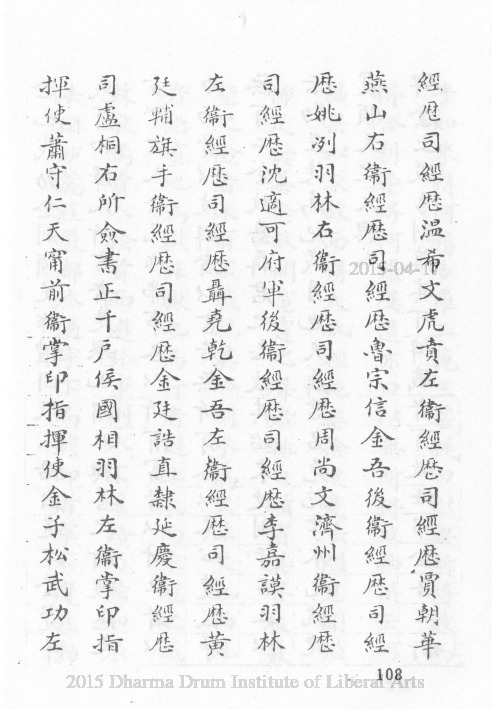 經歷司經歷溫希文虎賁左衞經歷司經歷賈朝華
燕山右衞經歷司經歷魯宗信金吾後衞經歷司經
歷姚冽羽林右衞經歷司經歷周尚文濟州衞經歷
司經歷沈適可府軍後衞經歷司經歷李嘉謨羽林
左衞經歷司經歷聶堯乾金吾左衞經歷司經歷黃
廷輔旗手衞經歷司經歷金廷誥直隸延慶衞經歷
司盧桐右所僉書正千戶侯國相羽林左衞掌印指
揮使蕭守仁天甯前衞掌印指揮使金子松武功左
108
2015-04-17
2015 Dharma Drum Institute of Liberal Arts